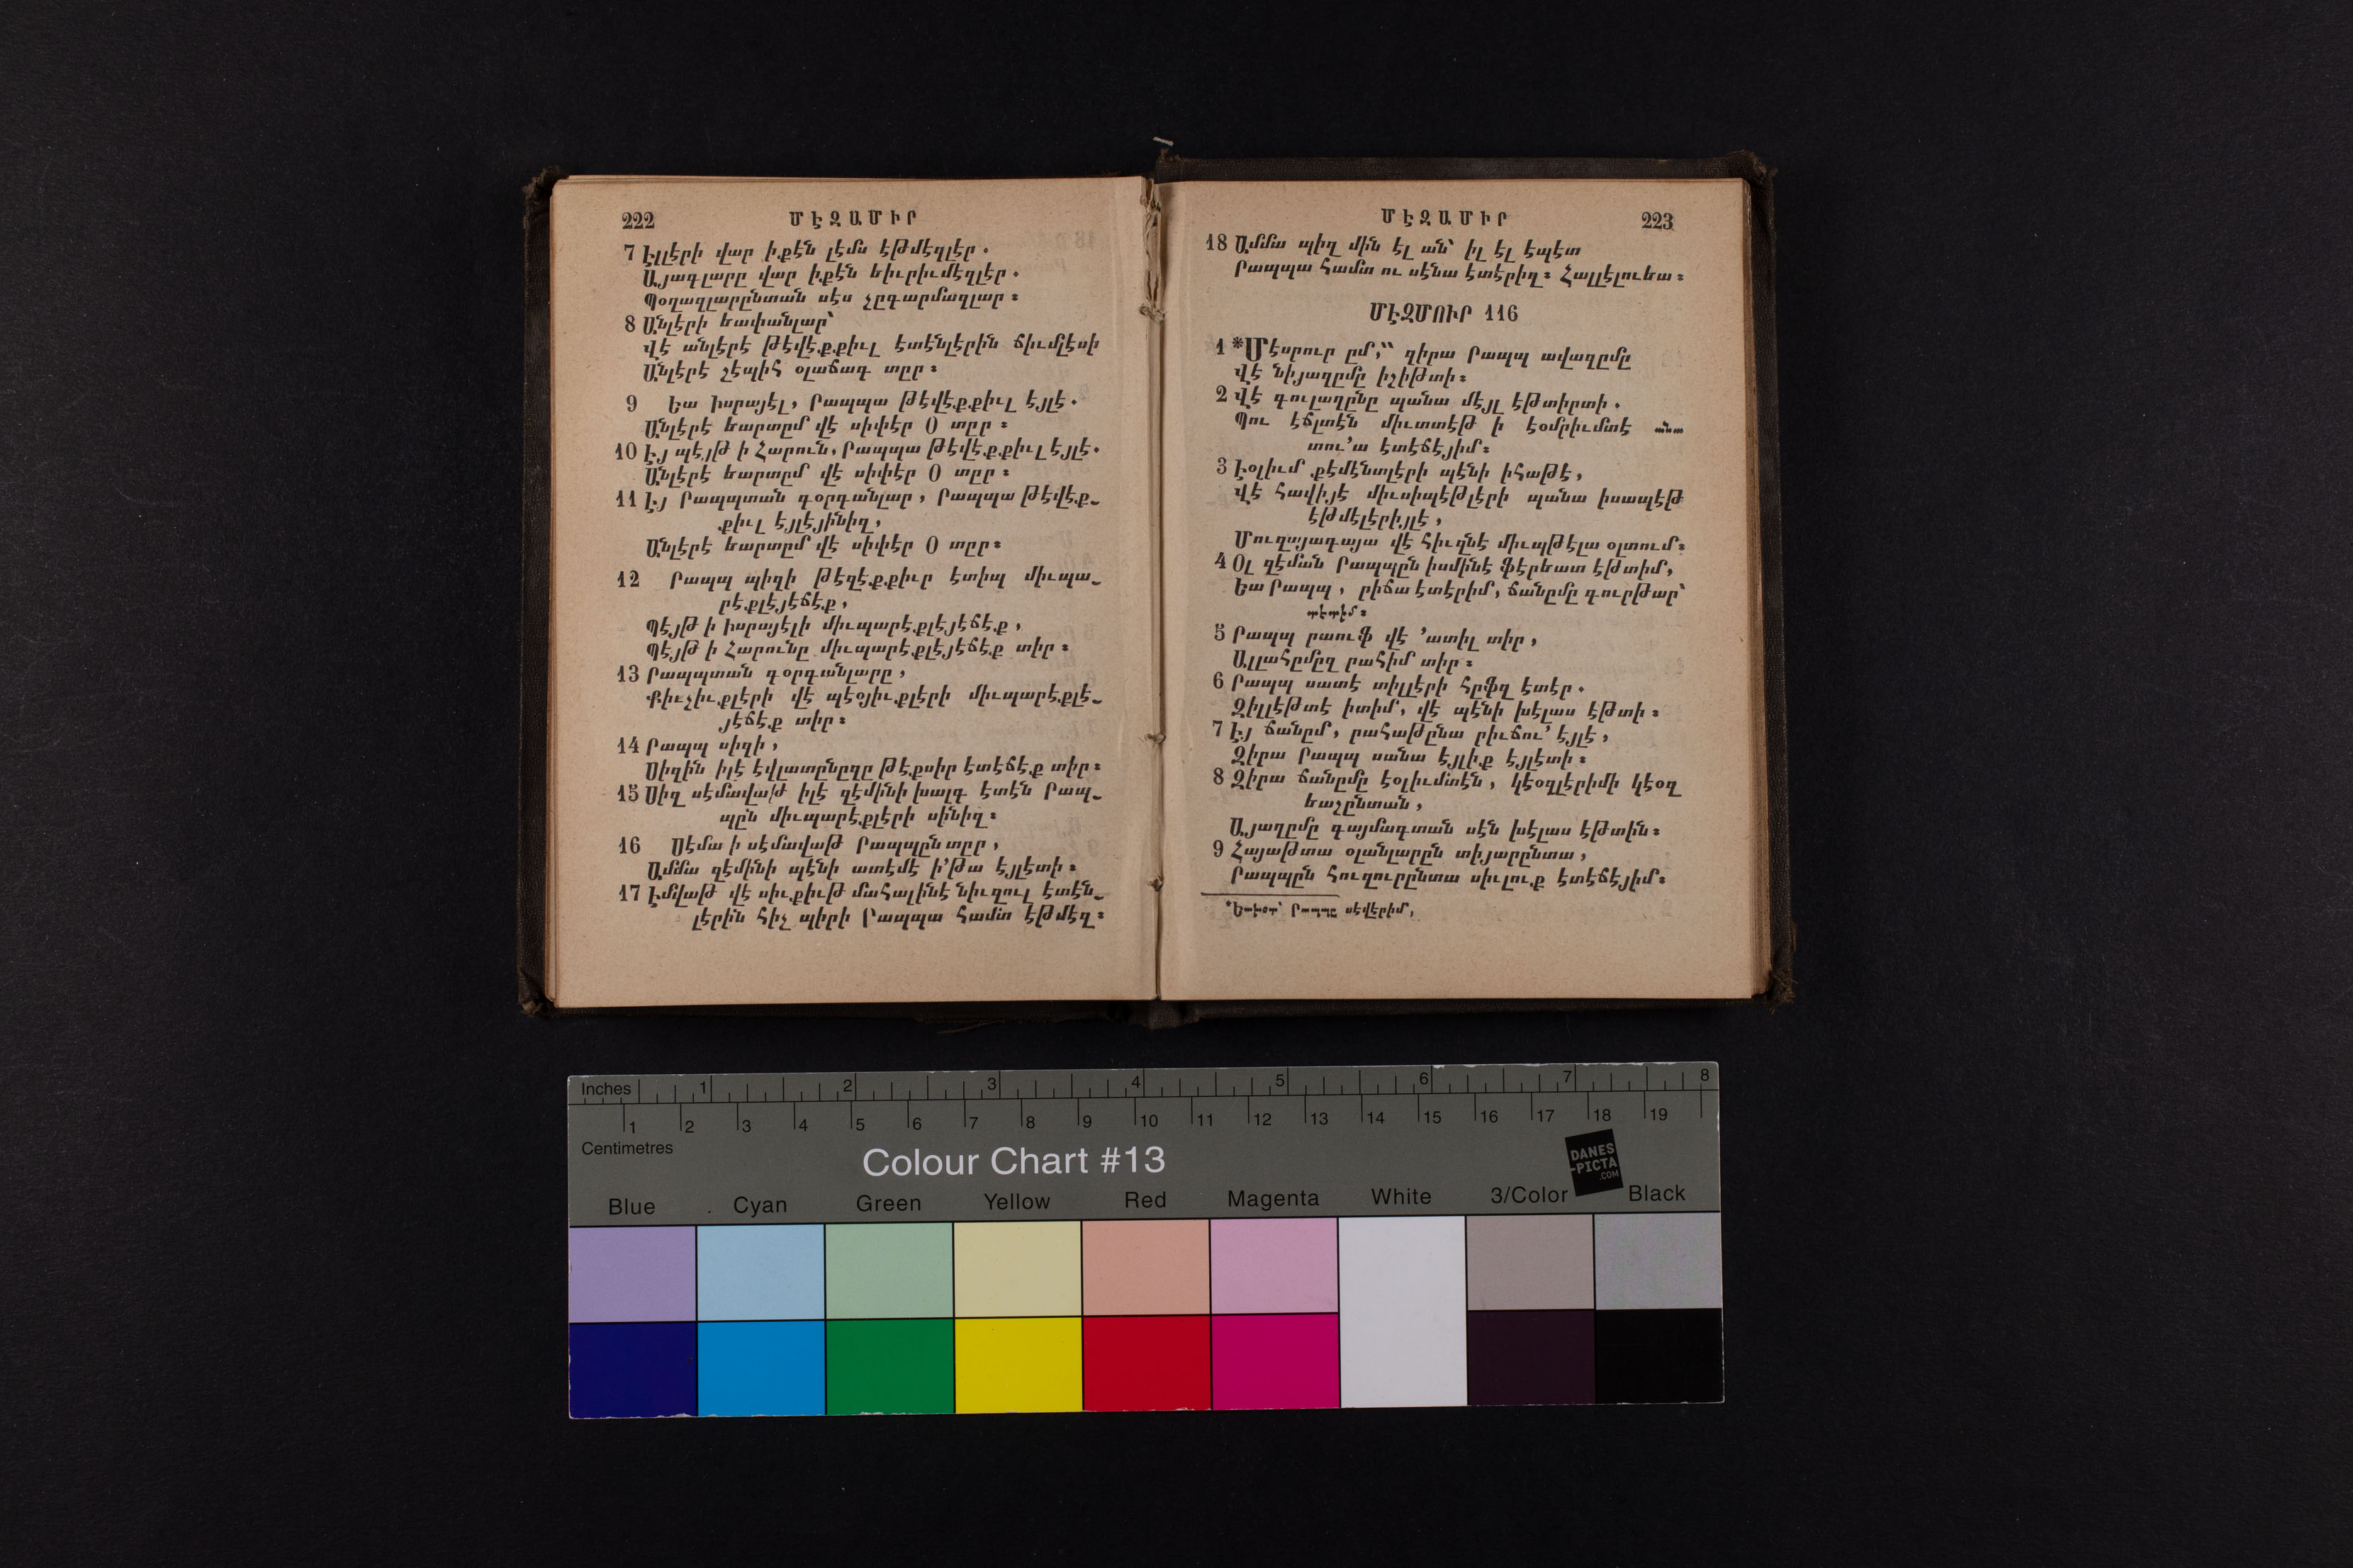 222 ՄԷԶԱՄԻՐ
7 Էլլէրի վար իքէն լէմս էթմէզլէր․
Այագլարը վար իքէն եիւրիւմէզլէր․
Պօղազլարընտան սէս չըգարմազլար։
8 Անլէրի եափանլար՝
Վէ անլէրէ թէվէքքիւլ էտէնլէրին ճիւմլէսի
Անլէրէ չէպիհ օլաճագ տըր։
9 Եա Իսրայէլ, Րապպա թէվէքքիւլ էյլէ․
Անլէրէ եարտըմ վէ սիփէր Օ տըր։
10 Էյ պէյթ ի Հարուն, Րապպա թէվէքքիւլ էյլէ․
Անլէրէ եարտըմ վէ սիփէր Օ տըր։
11 Էյ Րապպտան գօրգանլար, Րապպա թէվէք-
քիւլ էյլէյինիզ,
Անլէրէ եարտըմ վէ սիփէր Օ տըր։
12 Րապպ պիզի թէզէքքիւր էտիպ միւպա-
րէքլէյէճէք,
Պէյթ ի Իսրայէլի միւպարէքլէյէճէք,
Պէյթ ի Հարունը միւպարէքլէյէճէք տիր։
13 Րապպտան գօրգանլարը,
Քիւչիւքլէրի վէ պէօյիւքլէրի միւպարէքլէ-
յէճէք տիր։
14 Րապպ սիզի,
Սիզին իլէ էվլատընըզը թէքսիր էտէճէք տիր։
15 Սիզ սէմավաթ իլէ զէմինի խալգ էտէն Րապ-
պըն միւպարէքլէրի սինիզ։
16 Սէմա ի սէմավաթ Րապպըն տըր,
Ամմա զէմինի պէնի ատէմէ ի՚թա էյլէտի։
17 Էմվաթ վէ սիւքիւթ մահալինէ նիւզուլ էտէն-
լէրին հիչ պիրի Րապպա համտ էթմէզ։
ՄԷԶԱՄԻՐ 223
18 Ամմա պիզ մին էլ ան՝ իլ էլ էպէտ
Րապպա համտ ու սէնա էտէրիզ։ Հալլէլուեա։
ՄԷԶՄՈՒՐ 116
1 *Մէսրուր ըմ,՝՝ զիրա Րապպ ավազըմը
Վէ նիյազըմը իշիթտի։
2 Վէ գուլաղընը պանա մէյլ էթտիրտի․
Պու էճլտէն միւտտէթ ի էօմրիւմտէ անա
տու՚ա էտէճէյիմ։
3 Էօլիւմ քէմէնտլէրի պէնի իհաթէ,
Վէ հավիյէ միւսիպէթլէրի պանա իսապէթ
էթմէլէրիյլէ,
Մուզայագայա վէ հիւզնէ միւպթէլա օլտում։
4 Օլ զէման Րապպըն իսմինէ ֆէրեատ էթտիմ,
Եա Րապպ, րիճա էտէրիմ, ճանըմը գուրթար՝
տէտիմ։
5 Րապպ րաուֆ վէ ՚ատիլ տիր,
Ալլահըմըզ րահիմ տիր։
6 Րապպ սատէ տիլլէրի հըֆզ էտէր․
Զիլլէթտէ իտիմ, վէ պէնի խէլաս էթտի։
7 Էյ ճանըմ, րահաթընա րիւճու՚ էյլէ,
Զիրա Րապպ սանա էյլիք էյլէտի։
8 Զիրա ճանըմը էօլիւմտէն, կէօզլէրիմի կէօզ
եաշընտան,
Այաղըմը գայմագտան սէն խէլաս էթտին։
9 Հայաթտա օլանլարըն տիյարընտա,
Րապպըն հուզուրընտա սիւլուք էտէճէյիմ։
*Եախօտ՝ Րապպը սէվէրիմ,
Inches 1 2 3 4 5 6 7 8
1 2 3 4 5 6 7 8 9 10 11 12 13 14 15 16 17 18 19
Centimetres
Colour Chart #13
DANES
-PICTA
.COM
Blue Cyan Green Yellow Red Magenta White 3/Color Black